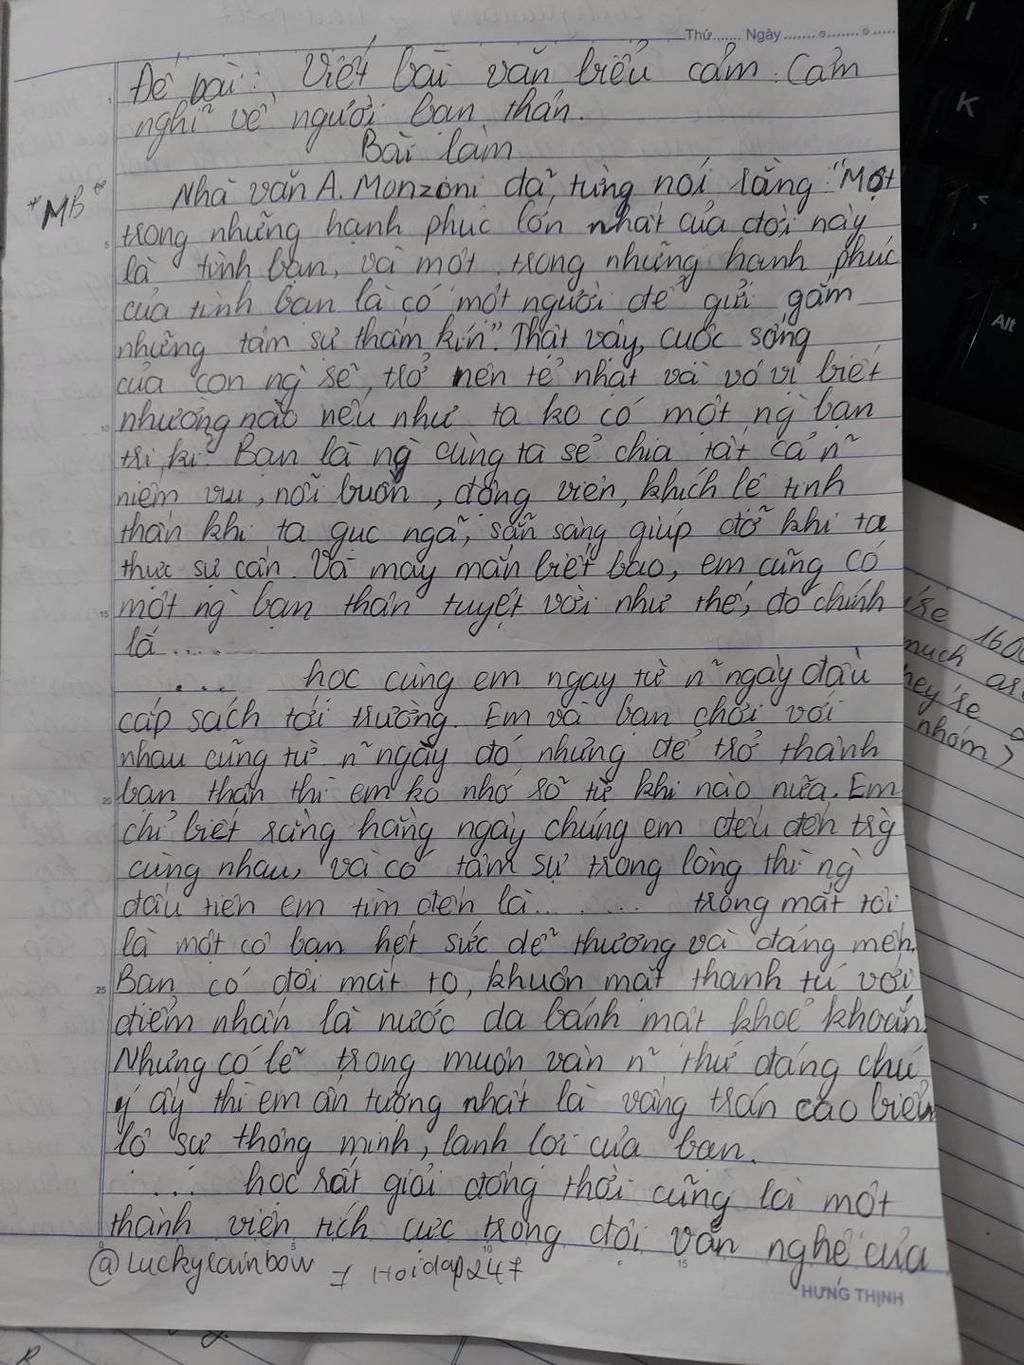 Thứ....... Ngày.......
Đề bài: Viết bài văn biểu cảm: Cảm
nghĩ về người bạn thân.
Bài làm
*MB* Nhà văn A. Monzoni đã từng nói rằng: "Một
trong những hạnh phúc lớn nhất của đời này
là tình bạn, và một trong những hạnh phúc
của tình bạn là có một người để gửi gắm
những tâm sự thầm kín". Thật vậy, cuộc sống
của con ng` sẽ trở nên tẻ nhạt và vô vị biết
nhường nào nếu như ta ko có một ng` bạn
tri kỉ. Bạn là ng` cùng ta sẻ chia tất cả n~
niềm vui, nỗi buồn, động viên, khích lệ tinh
thần khi ta gục ngã, sẵn sàng giúp đỡ khi ta
thực sự cần. Và may mắn biết bao, em cũng có
một ng` bạn thân tuyệt vời như thế, đó chính
là ....
.... học cùng em ngay từ n~ ngày đầu
cắp sách tới trường. Em và bạn chơi với
nhau cũng từ n~ ngày đó nhưng để trở thành
bạn thân thì em ko nhớ rõ từ khi nào nữa. Em
chỉ biết rằng hằng ngày chúng em đều đến trg`
cùng nhau, và có tâm sự trong lòng thì ng`
đầu tiên em tìm đến là ....... trong mắt tôi
là một cô bạn hết sức dễ thương và đáng mến.
Bạn có đôi mắt to, khuôn mặt thanh tú với
điểm nhấn là nước da bánh mật khoẻ khoắn.
Nhưng có lẽ trong muôn vàn n~ thứ đáng chú
ý ấy thì em ấn tượng nhất là vầng trán cao biểu
lộ sự thông minh, lanh lợi của bạn.
.... học rất giỏi đồng thời cũng là một
thành viên tích cực trong đội văn nghệ của
@luckyrainbow
Hoidap247
HƯNG THỊNH
K
Alt
're 1600
much are
hey're
nhóm)